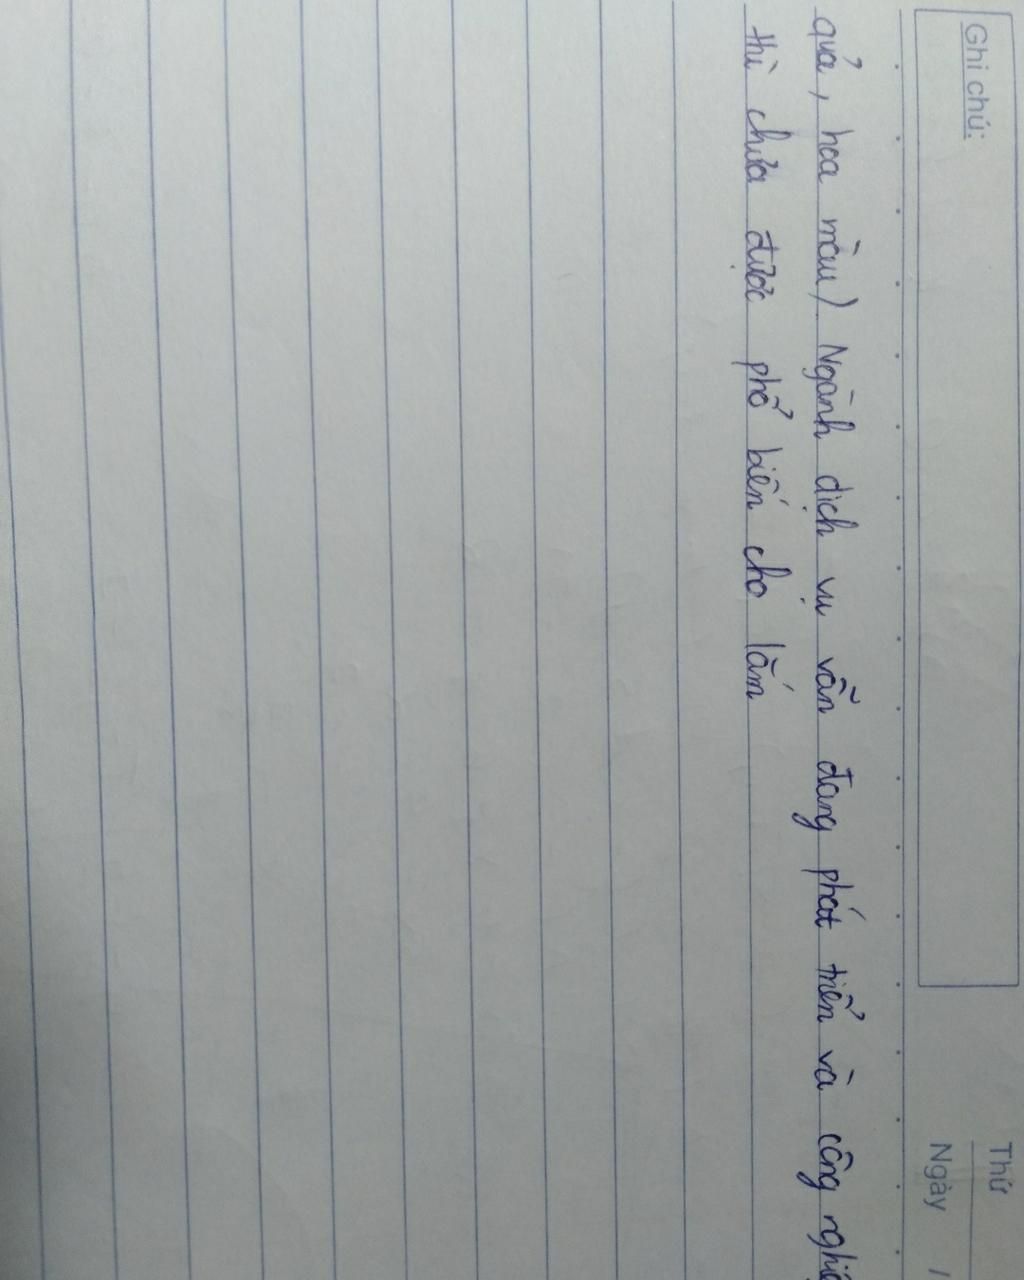 Ghi chú:
Thứ
Ngày /
quả, hoa màu) Ngành dịch vụ vẫn đang phát triển và công
thì chưa được phổ biến cho lắm